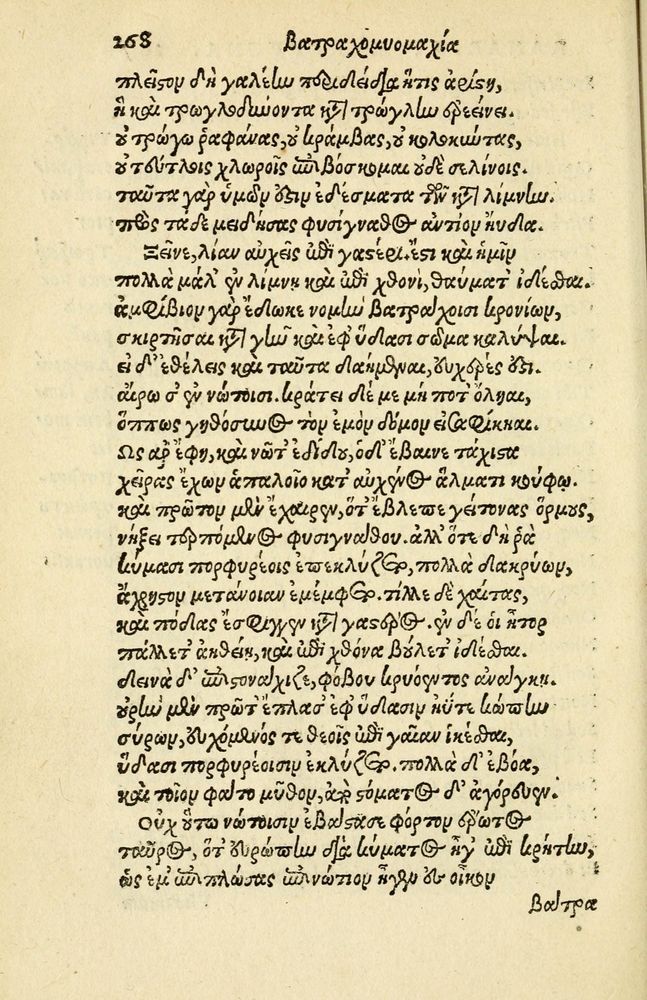 268 Βατραχομυομαχία
πλεῖςον δὴ γαλέην περιδείδια ἥτις ἀρίςη,
ἣ καὶ τρωγλοδύνοντα κατὰ τρώγλην ἐρεείνει.
οὐ τρώγω ῥαφάνας, οὐ κράμβας, οὐ κολοκύντας,
οὐ τεύτλοις χλωροῖς ἐπιβόσκομαι οὐδὲ σελίνοις.
ταῦτα γὰρ ὑμῶν ἐςιν ἐδέσματα τῶν κατὰ λίμνην.
πρὸς τάδε μειδήσας φυσίγναθος ἀντίον ηὔδα.
Ξεῖνε, λίαν αὐχεῖς ἐπὶ γαςέρι. ἔςι καὶ ἡμῖν
πολλὰ μάλ' ἐν λίμνῃ καὶ ἐπὶ χθονὶ, θαύματ' ἰδέσθαι.
ἀμφίβιον γὰρ ἔδωκε νομὴν βατράχοισι κρονίων,
σκιρτῆσαι κατὰ γῆν καὶ ἐφ' ὕδασι σῶμα καλύψαι.
εἰ δ' ἐθέλεις καὶ ταῦτα δαήμεναι, εὐχερές ἐςι.
αἴρω σ' ἐν νώτοισι. κράτει δέ με μή ποτ' ὄληαι,
ὅππως γηθόσυνος τὸν ἐμὸν δόμον εἰσαφίκηαι.
Ως ἄρ' ἔφη, καὶ νῶτ' ἐδίδου, ὁ δ' ἔβαινε τάχιςα
χεῖρας ἔχων ἁπαλοῖο κατ' αὐχένος ἅλματι κούφῳ.
καὶ πρῶτον μὲν ἔχαιρεν, ὅτ' ἔβλεπε γείτονας ὅρμους,
νήξει τερπόμενος φυσιγνάθου. ἀλλ' ὅτε δή ῥα
κύμασι πορφυρέοις ἐπεκλύζετο, πολλὰ δακρύων,
ἄχρηςον μετάνοιαν ἐμέμφετο. τίλλε δὲ χαίτας,
καὶ πόδας ἔσφιγγεν κατὰ γαςέρος. ἐν δέ οἱ ἦτορ
πάλλετ' ἀηθείῃ, καὶ ἐπὶ χθόνα βούλετ' ἰδέσθαι.
δεινὰ δ' ἐπεςονάχιζε, φόβου κρυόεντος ἀνάγκῃ.
οὐρὴν μὲν πρῶτ' ἔπλασ' ἐφ' ὕδασιν ἠΰτε κώπην
σύρων, εὐχόμενός τε θεοῖς ἐπὶ γαῖαν ἱκέσθαι,
ὕδασι πορφυρέοισιν ἐκλύζετο. πολλὰ δ' ἐβόα,
καὶ τοῖον φάτο μῦθον, ἀπὸ ςόματος δ' ἀγόρευεν.
Οὐχ οὕτω νώτοισιν ἐβάςασε φόρτον ἔρωτος
ταῦρος, ὅτ' εὐρώπην διὰ κύματος ἦγ' ἐπὶ κρήτην,
ὡς ἔμ' ἐπιπλώσας ἐπινώτιον ἦγεν ἐς οἶκον
βάτρα